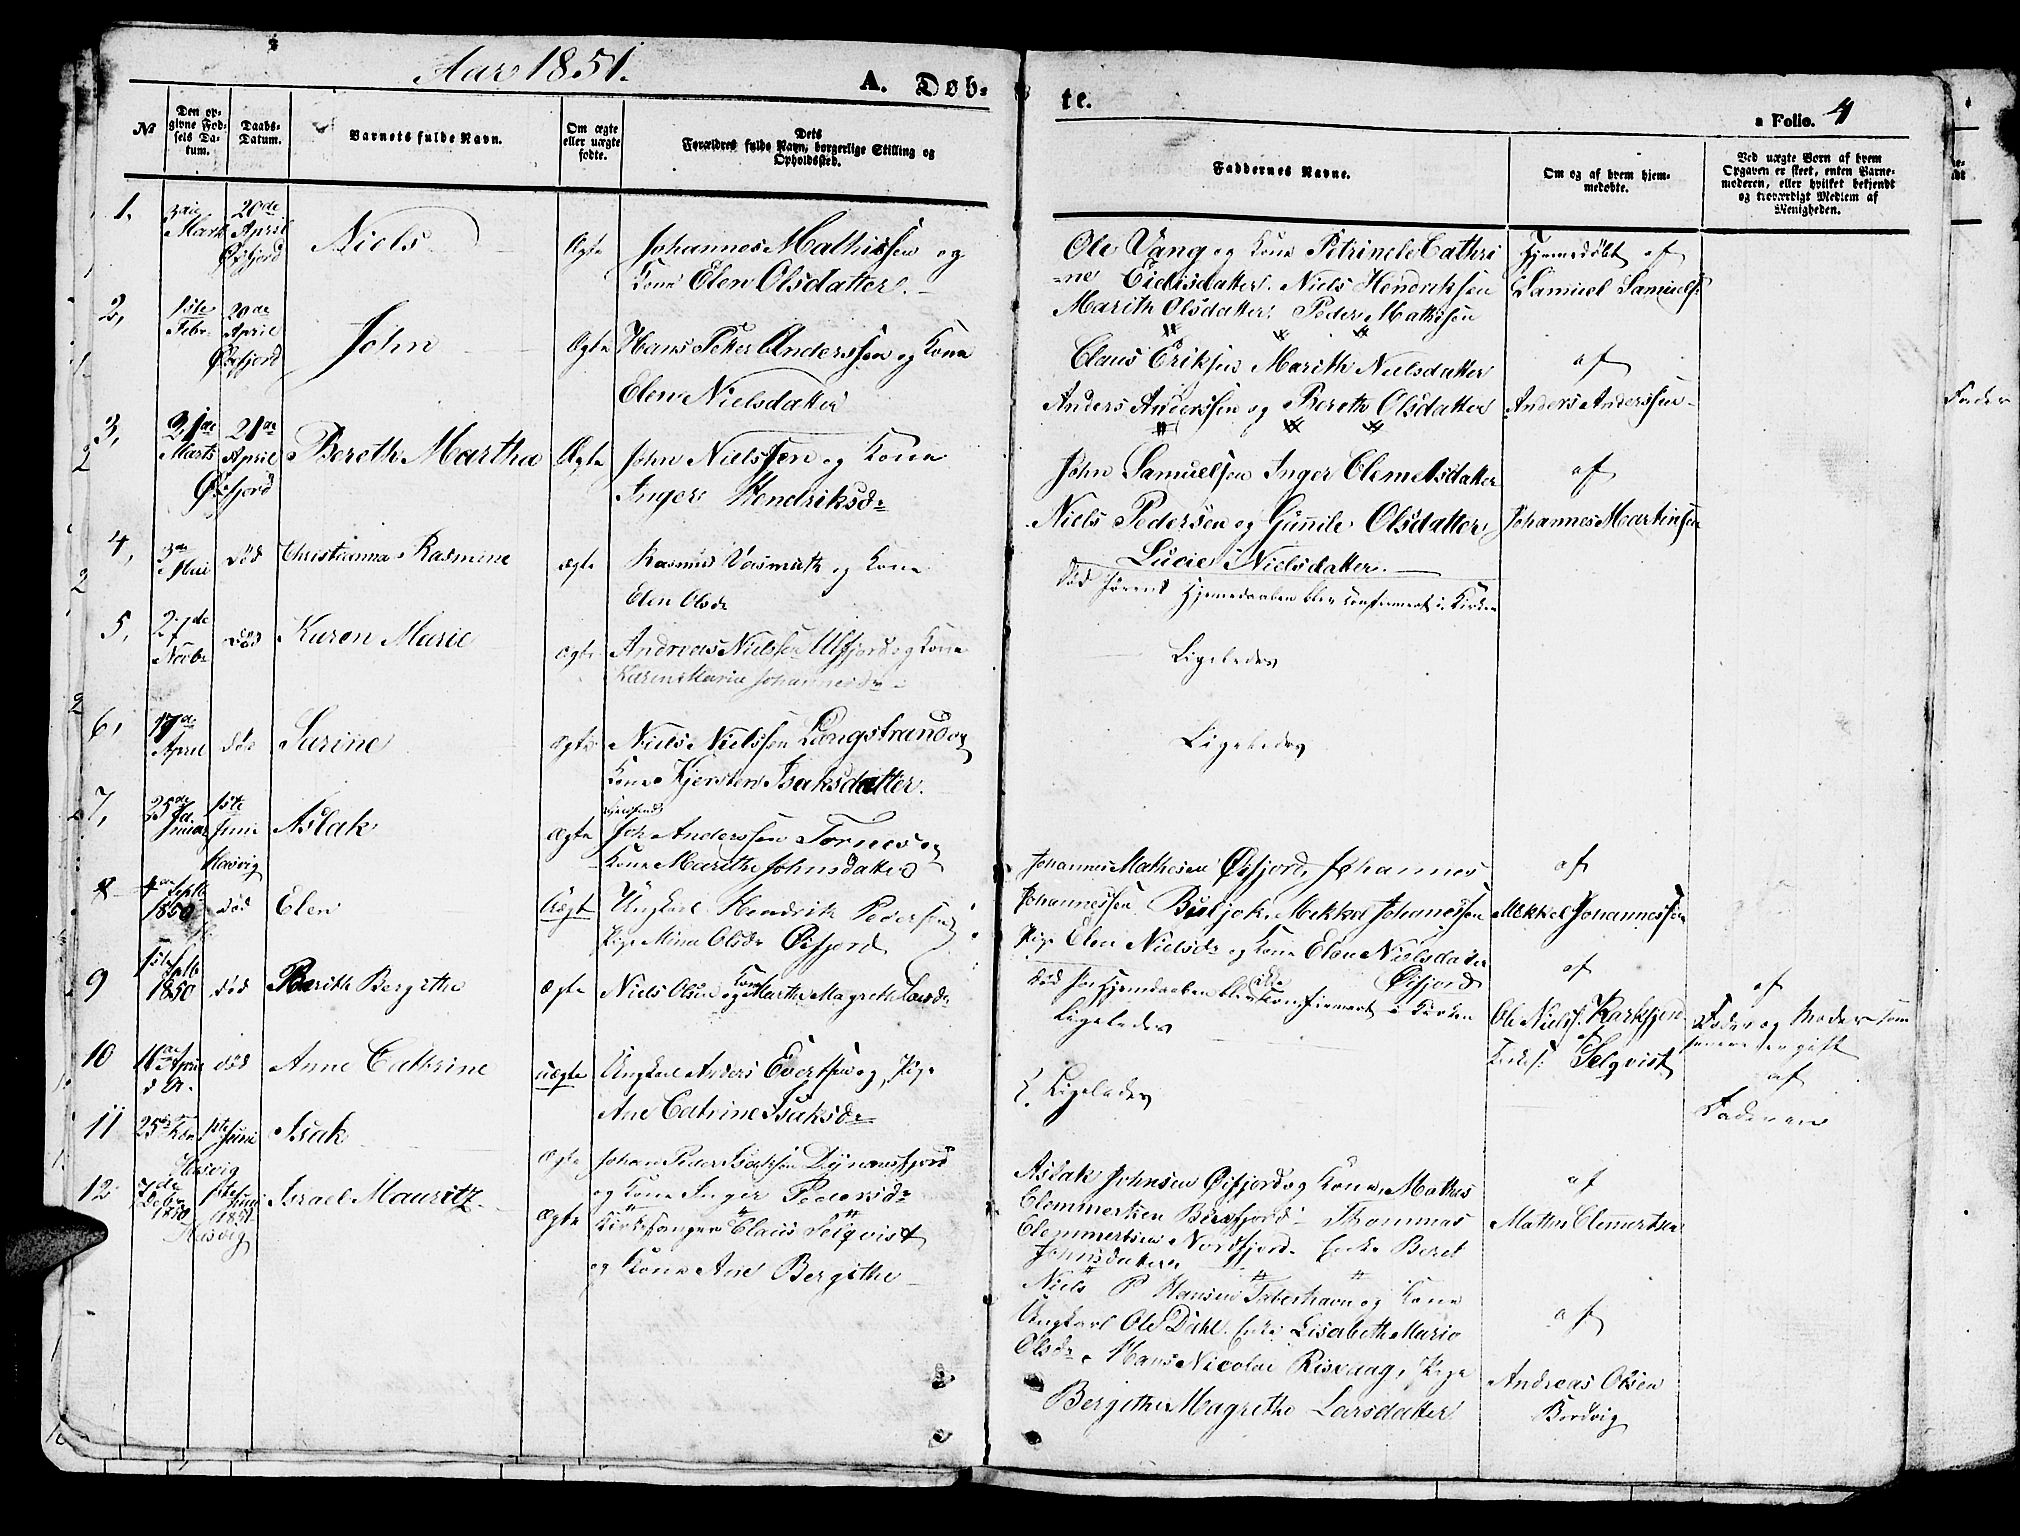 Aar 1851.
A. Døb-
te.
a Folio. 4
No
Den op-
givne Fød-
sels Da-
tum.
Daabs-
Datum.
Barnets fulde Navn.
Om ægte
eller uægte
fødte.
Dets
Forældres fulde Navn, borgerlige Stilling og
Opholdssted.
Faddernes Navne.
Om og af hvem hjem-
medøbte.
Ved uægte Børn af hvem
Opgaven er skeet, enten Barne-
moderen, eller hvilket bekjendt
og troværdigt Medlem af
Menigheden.
1.
Marts
20de
April
Øxfjord
Niels
Ægte
Johannes Mathissen og
Kone Elen Olsdatter.
Ole Vang og Kone Petrinele Cathri
-ne Eidisdatter. Niels Hendriksen
Marith Olsdatter. Peder Mathisen
Hjemedøbt af
Samuel Samuels:
2,
1ste
Febr.
20de
April
Øxfjord
John
Ægte
Hans Peter Anderssen og Kone
Elen Nielsdatter
Claus Eriksen Marith Nielsdatter
Anders Anderssen og Bereth Olsdatter
af
Anders Anderssen
3,
21de
Marts
21de
April
Øxfjord
Bereth Martha
Ægte
John Nielssen og Kone
Inger Hendriksd:
John Samuelsen Inger Clemetsdatter
Niels Pedersen og Gunnile Olsdatter
Lucie Nielsdatter.
af
Johannes Martinsen
4,
3de
Mai
død
Christianna Rasmine
ægte
Rasmus Vasmuth og Kone
Elen Olsdr
død førend Hjemedaaben blev confirmert i Kirken
5,
27de
Novbr
død
Karen Marie
ægte
Andreas Nielsen Ulfjord og Kone
Karen Maria Johannesdr
Ligeledes
6,
17de
April
død
Serine
ægte
Niels Nielssen Langstrand og
Kone Kjersten Isaksdatter.
Ligeledes
7,
25de
Januar
1ste
Juni
Hasvig
Aslak
Ægte
Joh Anderssen Tornes og
Kone Marithe Johnsdatter
Johannes Mathesen Øxfjord, Johannes
Johannessen Buckjok. Mekkel Johannessen
Pige Elen Nielsdr og Kone Elen Nielsdatter
Øxfjord
af
Mekkel Johannessen
8
4de Septb
1850
død
Elen
Uægt
Ungkarl Hendrik Pedersen
Pige Mina Olsdr Øxfjord
død før Hjemdaaben blev ikke confirmert i Kirken
af
Ole Niels: Karkfjor
af
Fader og Moder som
senere er gift
9
1ste Septb
1850
død
Berith Bergithe
ægte
Niels Olsen og Kone Marthe Magrethe Larsdr
Ligeledes
Kirkes: Selqvist
10
16de April
d. A.
død
Anne Cathrine
uægte
Ungkarl Anders Evertsen og Pige
Ane Catrine Isaksdr
Ligeledes
af
Faderen
11
25de Febr
1ste Juni
Hasvig
Isak
Ægte
Johan Peder Isaksen Dynnesfjord
og Kone Inger Pedersdr
Aslak Johnsen Øxfjord og Kone, Mathis
Clemmertsen Bursfjord. Thommas
Clemmertsen Nordfjord. Enke Beret
Johnsdatter
af
Mathis Clemmertsen
12
7de
Decbr
1850
1ste
Juni
1851
Hasvig
Israel Mauritz
Ægte
Kirkesanger Claus Selqvist
og Kone Ane Bergithe
Niels P Hansen Faberhavn og Kone
Ungkarl Ole Dahl. Enke Lisabeth Maria
Olsdr. Hans Nicolai Risvaag, Pige
Bergithe Magrethe Larsdatter
af
Andreas Olsen
Bredvig
Fader